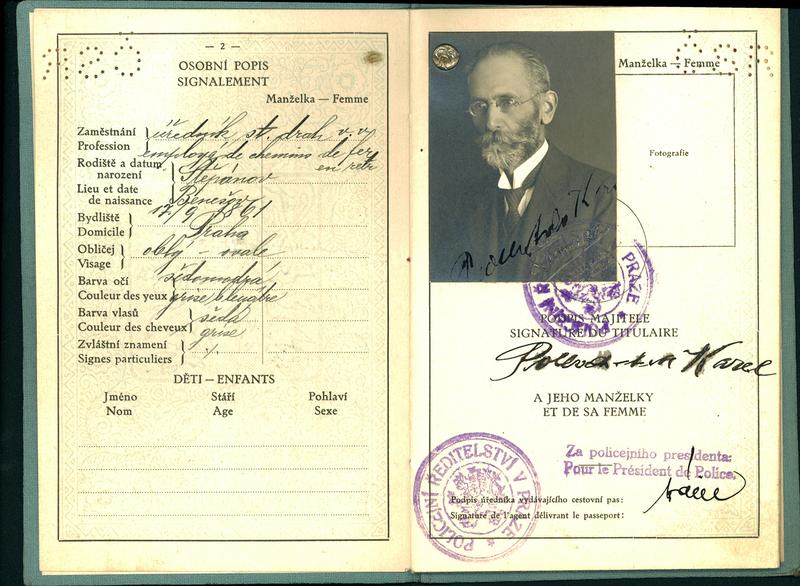 — 2 —
OSOBNÍ POPIS
SIGNALEMENT
Manželka — Femme
Zaměstnání úředník st. drah v. v.
Profession employé de chemins de fer
en retr
Rodiště a datum narození Štěpánov
Lieu et date de naissance Benešov
17/9 1861
Bydliště
Domicile Praha
Obličej
Visage oblý – ovale
Barva očí šedomodrá
Couleur des yeux grise bleuâtre
Barva vlasů šedá
Couleur des cheveux grise
Zvláštní znamení
Signes particuliers
DĚTI — ENFANTS
Jméno Stáří Pohlaví
Nom Age Sexe
Manželka — Femme
Fotografie
V PRAZE
PODPIS MAJITELE
SIGNATURE DU TITULAIRE
Karel
A JEHO MANŽELKY
ET DE SA FEMME
Za policejního presidenta:
Pour le Président de Police.
POLICEJNÍ ŘEDITELSTVÍ V PRAZE
Podpis úředníka vydávajícího cestovní pas:
Signature de l'agent délivrant le passeport: